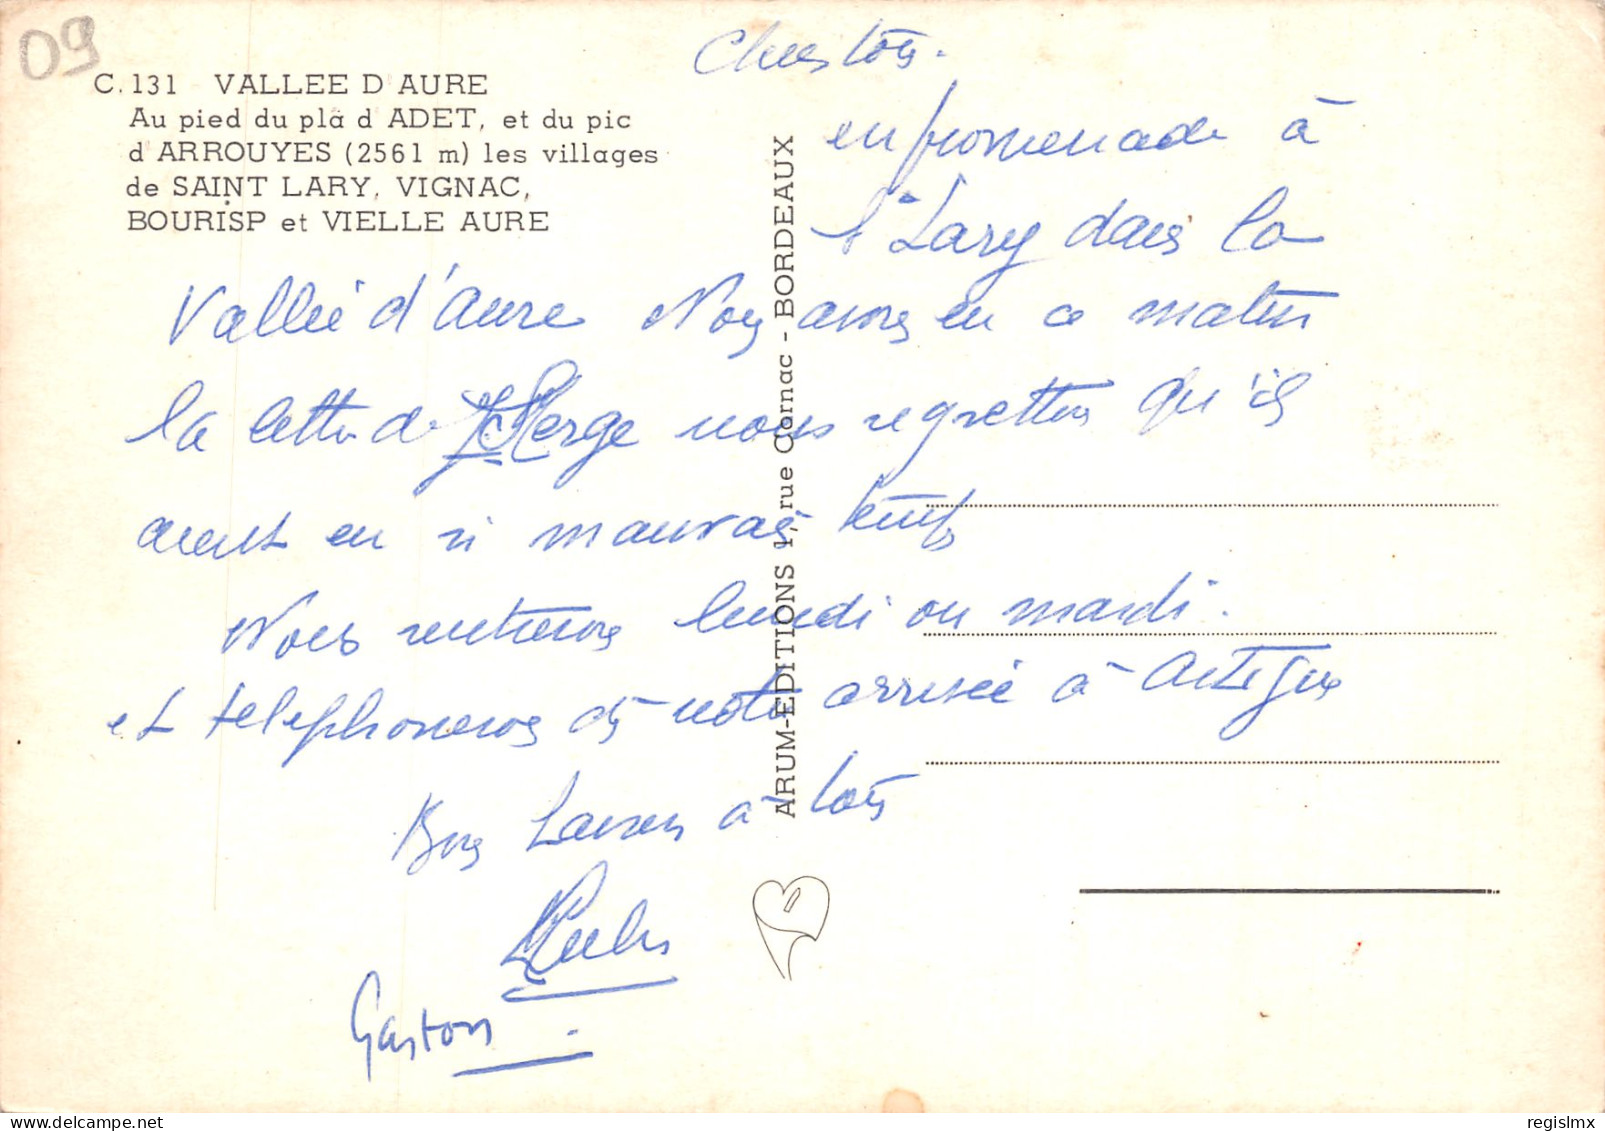 09
C. 131 - VALLEE D'AURE
Au pied du plà d'ADET, et du pic
d'ARROUYES (2561 m) les villages
de SAINT LARY, VIGNAC,
BOURISP et VIELLE AURE
ARUM-EDITIONS 17, rue Cornac - BORDEAUX
Chers tous.
en promenade à
St Lary dans la
Vallée d'Aure Nous avons eu ce matin
la lettre de Serge nous regrettons qu'ils
aient eu si mauvais temps
Nous rentrerons lundi ou mardi.
et telephonerons dès notre arrivée à Artigues
Bons baisers à tous
Gaston
regislmx